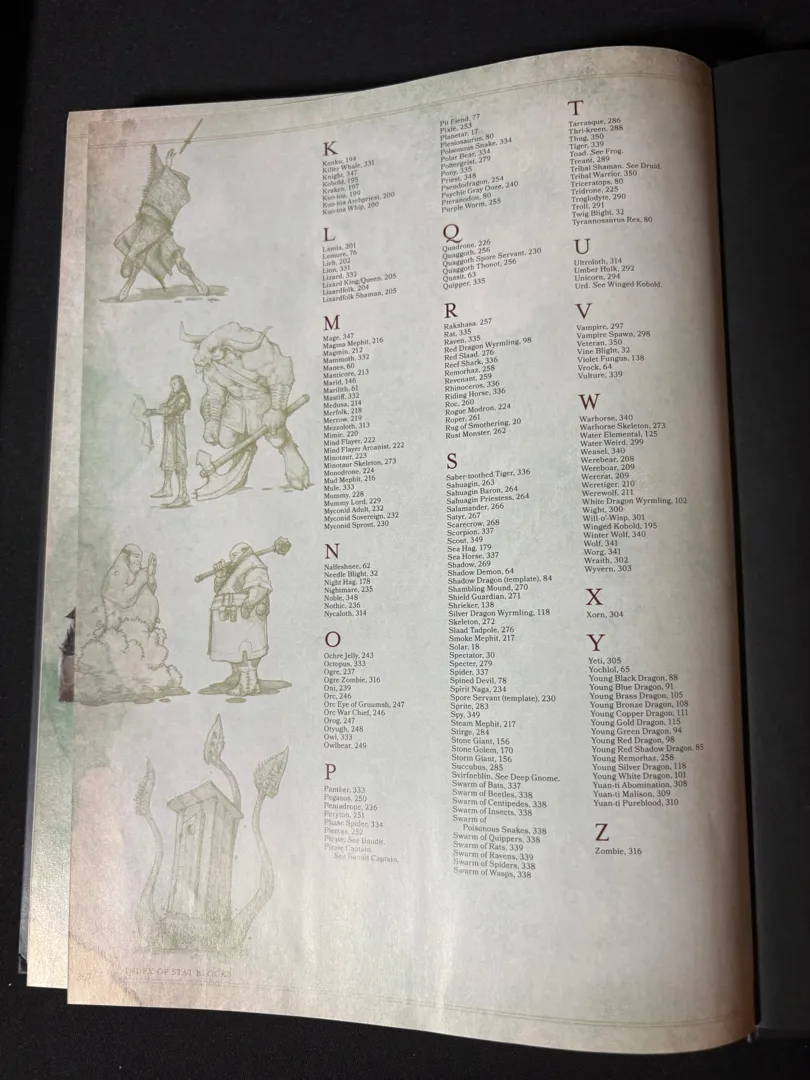 K
Kenku, 194
Killer Whale, 331
Knight, 347
Kobold, 195
Kraken, 197
Kuo-toa, 199
Kuo-toa Archpriest, 200
Kuo-toa Whip, 200
L
Lamia, 201
Lemure, 76
Lich, 202
Lion, 331
Lizard, 332
Lizard King/Queen, 205
Lizardfolk, 204
Lizardfolk Shaman, 205
M
Mage, 347
Magma Mephit, 216
Magmin, 212
Mammoth, 332
Manes, 60
Manticore, 213
Marid, 146
Marilith, 61
Mastiff, 332
Medusa, 214
Merfolk, 218
Merrow, 219
Mezzoloth, 313
Mimic, 220
Mind Flayer, 222
Mind Flayer Arcanist, 222
Minotaur, 223
Minotaur Skeleton, 273
Monodrone, 224
Mud Mephit, 216
Mule, 333
Mummy, 228
Mummy Lord, 229
Myconid Adult, 232
Myconid Sovereign, 232
Myconid Sprout, 230
N
Nalfeshnee, 62
Needle Blight, 32
Night Hag, 178
Nightmare, 235
Noble, 348
Nothic, 236
Nycaloth, 314
O
Ochre Jelly, 243
Octopus, 333
Ogre, 237
Ogre Zombie, 316
Oni, 239
Orc, 246
Orc Eye of Gruumsh, 247
Orc War Chief, 246
Orog, 247
Otyugh, 248
Owl, 333
Owlbear, 249
P
Panther, 333
Pegasus, 250
Pentadrone, 226
Peryton, 251
Phase Spider, 334
Piercer, 252
Pirate. See Bandit.
Pirate Captain.
See Bandit Captain.
Pit Fiend, 77
Pixie, 253
Planetar, 17
Plesiosaurus, 80
Poisonous Snake, 334
Polar Bear, 334
Poltergeist, 279
Pony, 335
Priest, 348
Pseudodragon, 254
Psychic Gray Ooze, 240
Pteranodon, 80
Purple Worm, 255
Q
Quadrone, 226
Quaggoth, 256
Quaggoth Spore Servant, 230
Quaggoth Thonot, 256
Quasit, 63
Quipper, 335
R
Rakshasa, 257
Rat, 335
Raven, 335
Red Dragon Wyrmling, 98
Red Slaad, 276
Reef Shark, 336
Remorhaz, 258
Revenant, 259
Rhinoceros, 336
Riding Horse, 336
Roc, 260
Rogue Modron, 224
Roper, 261
Rug of Smothering, 20
Rust Monster, 262
S
Saber-toothed Tiger, 336
Sahuagin, 263
Sahuagin Baron, 264
Sahuagin Priestess, 264
Salamander, 266
Satyr, 267
Scarecrow, 268
Scorpion, 337
Scout, 349
Sea Hag, 179
Sea Horse, 337
Shadow, 269
Shadow Demon, 64
Shadow Dragon (template), 84
Shambling Mound, 270
Shield Guardian, 271
Shrieker, 138
Silver Dragon Wyrmling, 118
Skeleton, 272
Slaad Tadpole, 276
Smoke Mephit, 217
Solar, 18
Spectator, 30
Specter, 279
Spider, 337
Spined Devil, 78
Spirit Naga, 234
Spore Servant (template), 230
Sprite, 283
Spy, 349
Steam Mephit, 217
Stirge, 284
Stone Giant, 156
Stone Golem, 170
Storm Giant, 156
Succubus, 285
Svirfneblin. See Deep Gnome.
Swarm of Bats, 337
Swarm of Beetles, 338
Swarm of Centipedes, 338
Swarm of Insects, 338
Swarm of
Poisonous Snakes, 338
Swarm of Quippers, 338
Swarm of Rats, 339
Swarm of Ravens, 339
Swarm of Spiders, 338
Swarm of Wasps, 338
T
Tarrasque, 286
Thri-kreen, 288
Thug, 350
Tiger, 339
Toad. See Frog.
Treant, 289
Tribal Shaman. See Druid.
Tribal Warrior, 350
Triceratops, 80
Tridrone, 225
Troglodyte, 290
Troll, 291
Twig Blight, 32
Tyrannosaurus Rex, 80
U
Ultroloth, 314
Umber Hulk, 292
Unicorn, 294
Urd. See Winged Kobold.
V
Vampire, 297
Vampire Spawn, 298
Veteran, 350
Vine Blight, 32
Violet Fungus, 138
Vrock, 64
Vulture, 339
W
Warhorse, 340
Warhorse Skeleton, 273
Water Elemental, 125
Water Weird, 299
Weasel, 340
Werebear, 208
Wereboar, 209
Wererat, 209
Weretiger, 210
Werewolf, 211
White Dragon Wyrmling, 102
Wight, 300
Will-o'-Wisp, 301
Winged Kobold, 195
Winter Wolf, 340
Wolf, 341
Worg, 341
Wraith, 302
Wyvern, 303
X
Xorn, 304
Y
Yeti, 305
Yochlol, 65
Young Black Dragon, 88
Young Blue Dragon, 91
Young Brass Dragon, 105
Young Bronze Dragon, 108
Young Copper Dragon, 111
Young Gold Dragon, 115
Young Green Dragon, 94
Young Red Dragon, 98
Young Red Shadow Dragon, 85
Young Remorhaz, 258
Young Silver Dragon, 118
Young White Dragon, 101
Yuan-ti Abomination, 308
Yuan-ti Malison, 309
Yuan-ti Pureblood, 310
Z
Zombie, 316
INDEX OF STAT BLOCKS